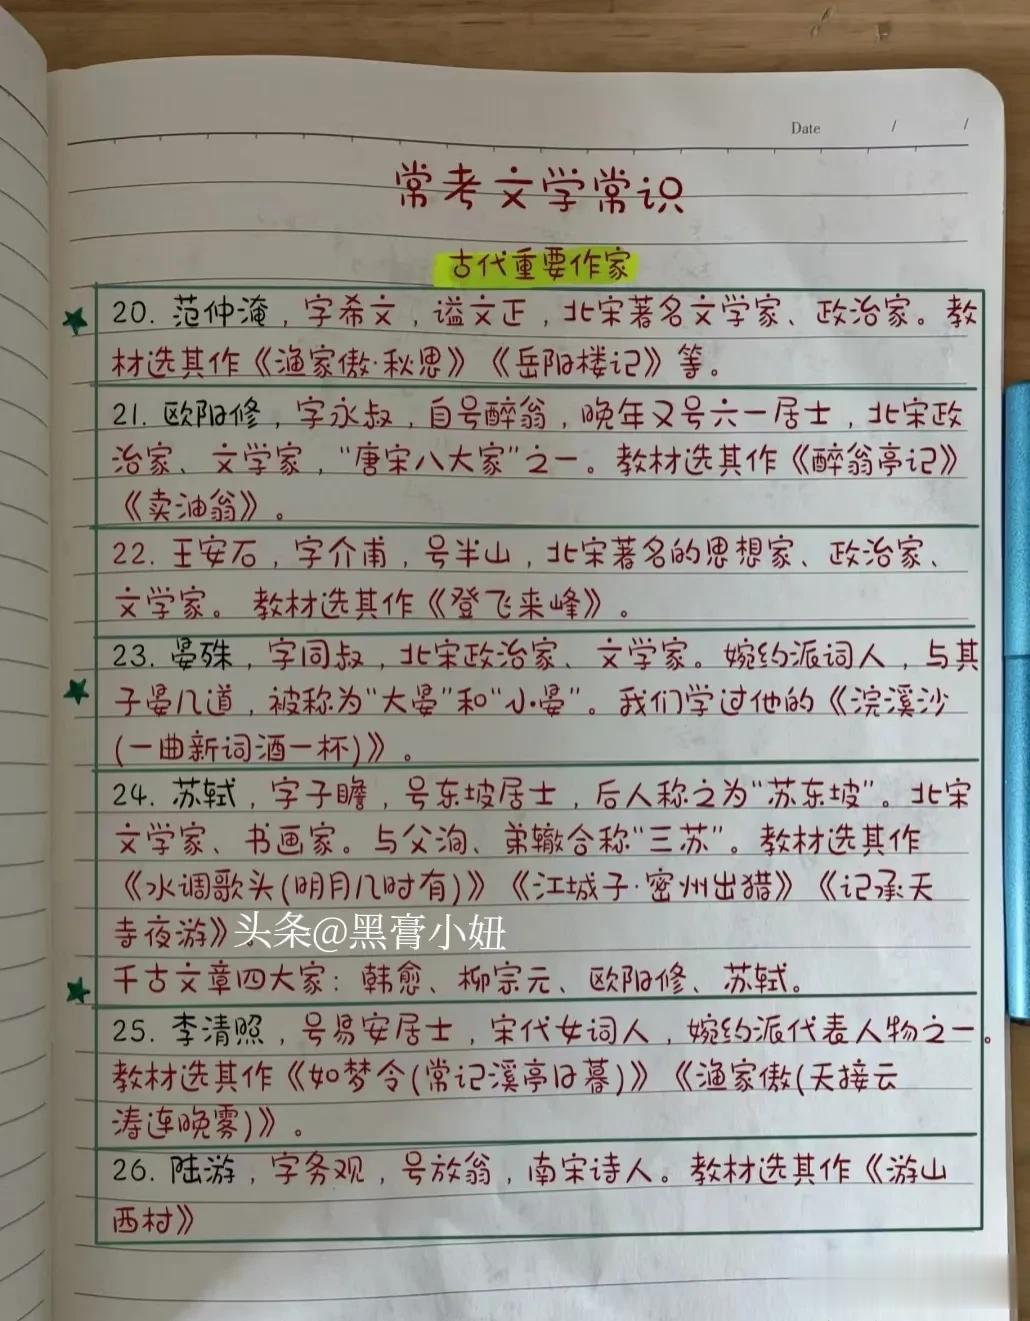 Date / /
常考文学常识
古代重要作家
20. 范仲淹，字希文，谥文正，北宋著名文学家、政治家。教
材选其作《渔家傲·秋思》《岳阳楼记》等。
21. 欧阳修，字永叔，自号醉翁，晚年又号六一居士，北宋政
治家、文学家，“唐宋八大家”之一。教材选其作《醉翁亭记》
《卖油翁》。
22. 王安石，字介甫，号半山，北宋著名的思想家、政治家、
文学家。教材选其作《登飞来峰》。
23. 晏殊，字同叔，北宋政治家、文学家。婉约派词人，与其
子晏几道，被称为“大晏”和“小晏”。我们学过他的《浣溪沙
(一曲新词酒一杯)》。
24. 苏轼，字子瞻，号东坡居士，后人称之为“苏东坡”。北宋
文学家、书画家。与父洵、弟辙合称“三苏”。教材选其作
《水调歌头(明月几时有)》《江城子·密州出猎》《记承天
寺夜游》。
头条@黑膏小妞
千古文章四大家：韩愈、柳宗元、欧阳修、苏轼。
25. 李清照，号易安居士，宋代女词人，婉约派代表人物之一。
教材选其作《如梦令(常记溪亭日暮)》《渔家傲(天接云
涛连晓雾)》。
26. 陆游，字务观，号放翁，南宋诗人。教材选其作《游山
西村》